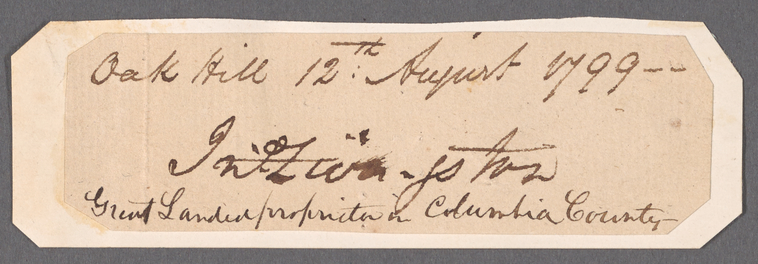 Oak Hill 12th. August 1799--
Jno Livingston
Great Landed proprietor in Columbia County